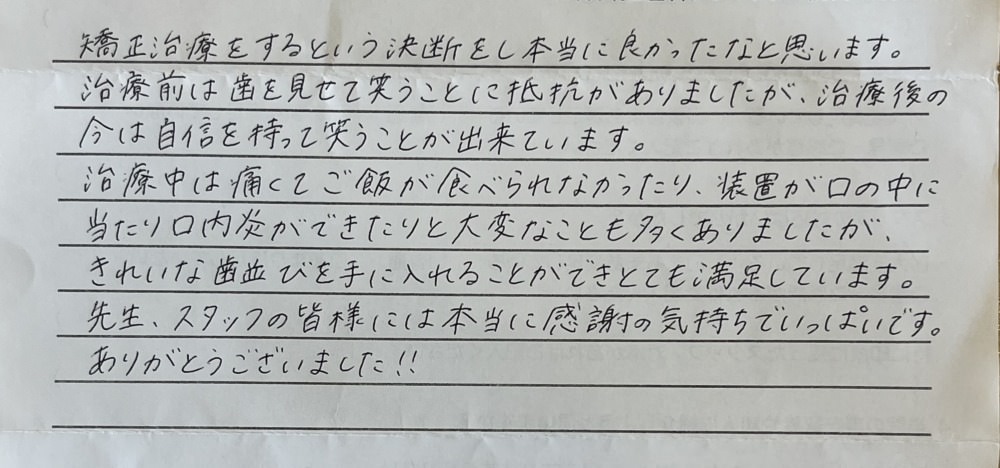 矯正治療をするという決断をし本当に良かったなと思います。
治療前は歯を見せて笑うことに抵抗がありましたが、治療後の
今は自信を持って笑うことが出来ています。
治療中は痛くてご飯が食べられなかったり、装置が口の中に
当たり口内炎ができたりと大変なことも多くありましたが、
きれいな歯並びを手に入れることができとても満足しています。
先生、スタッフの皆様には本当に感謝の気持ちでいっぱいです。
ありがとうございました!!